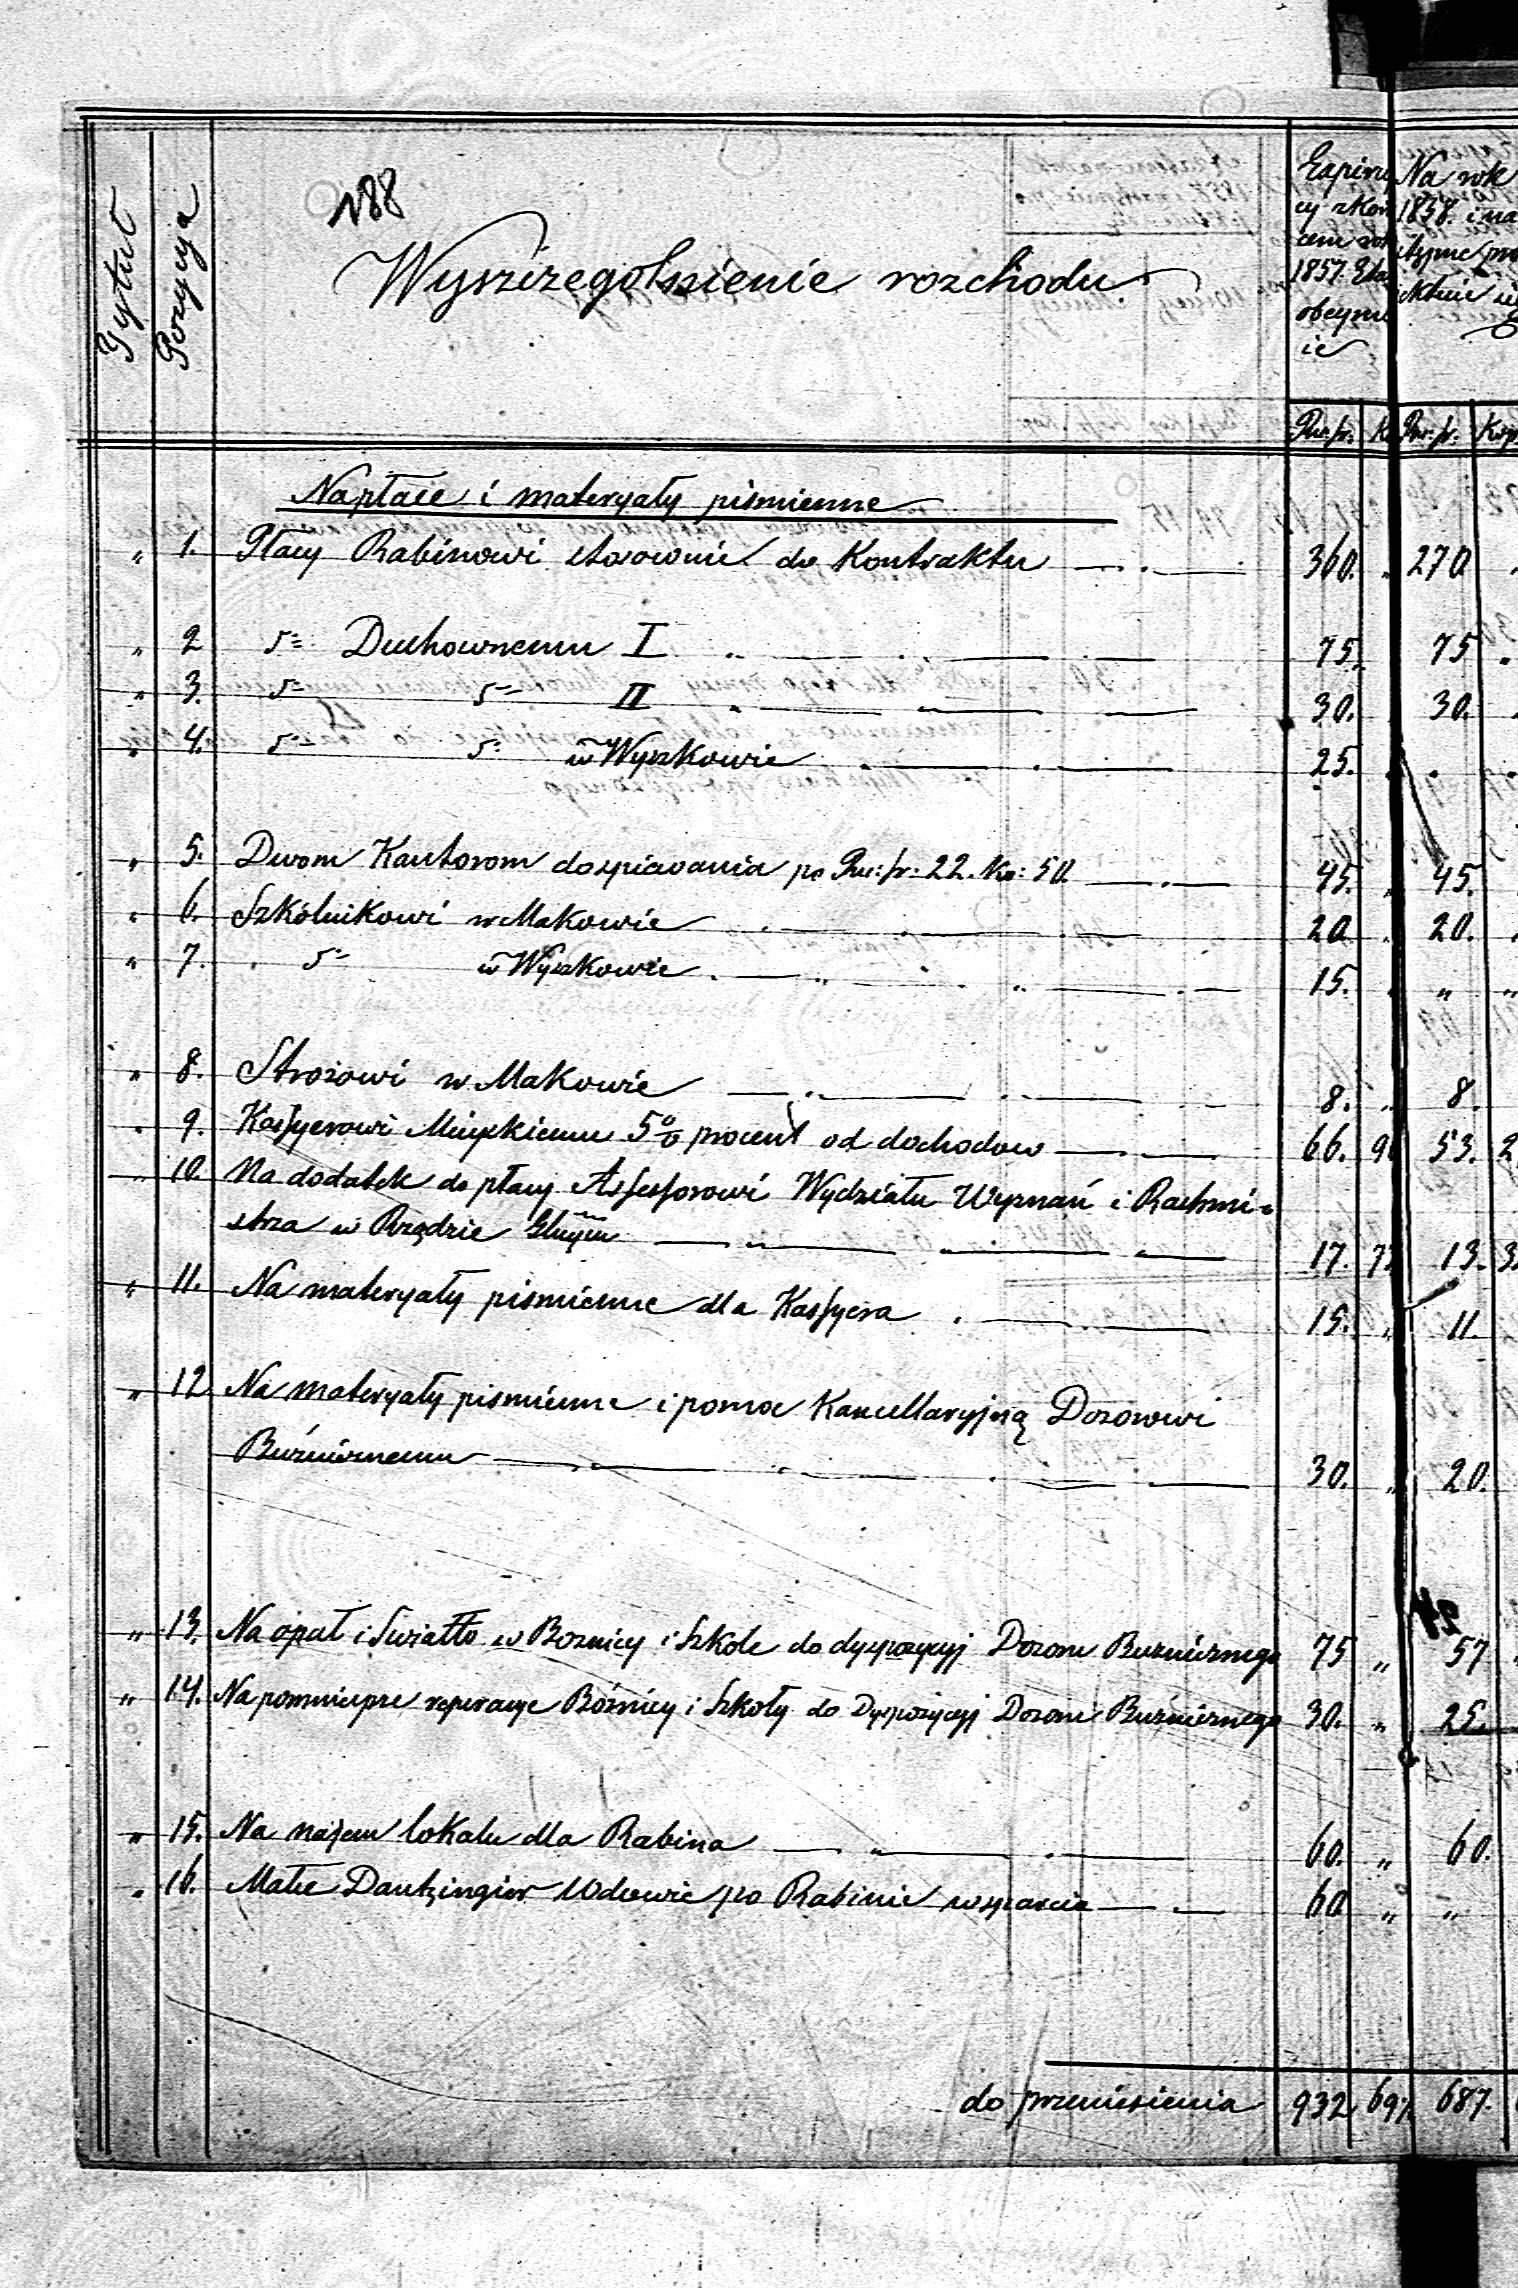 188
Tytuł
Pozycja
Wyszczegolnienie rozchodu
cy z koń
cem
1857. Eta
obeymu
ie
Na rok
1858. i na
Rsr. k. Rsr. Kop
Na płace i materyały piśmienne
" 1. Płacy Rabinowi stosownie do Kontraktu 360. " 270
" 2 Duchownemu I 75. 75 "
" 3. II 30. 30.
" 4. w Wyszkowie 25. "
" 5. Dwom Kantorom do spiewania po Rsr: 22. Ko: 50. 45. " 45.
" 6. Szkólnikowi w Makowie 20 20.
" 7. w Wyszkowie 15. " "
" 8. Strożowi w Makowie 8. " 8.
" 9. Kassyerowi Mieyskiemu 5% procent od dochodow 66. 53. 2
" 10. Na dodatek do płacy Assessorowi Wydziału Wyznań i Rachmi=
strza w Rządzie 17. 13. 3
" 11. Na materyały piśmienne dla Kassyera 15. " 11.
" 12 Na materyały piśmienne i pomoc Kancellaryjną Dozorowi
Buźnicznemu 30. " 20.
" 13. Na opał i Swiatło w Boznicy i Szkole do dyspozycyj Dozoru Buznicznego 75 " 57
" 14. Na pomniejsze reperacye Bóźnicy i Szkoły do Dyspozycyj Dozoru Buźnicznego 30. " 25.
" 15. Na najem lokalu dla Rabina 60. " 60.
" 16. Wdowie po Rabinie wsparcia 60 " "
do przeniesienia 932 69 687.